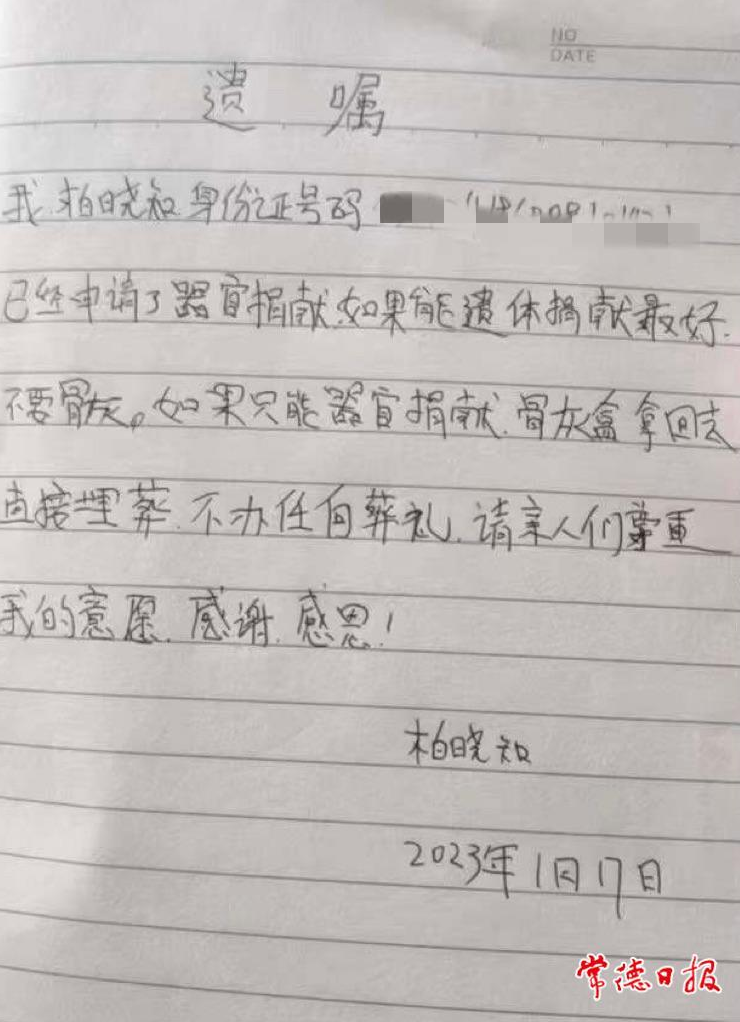 NO
DATE
遗嘱
我.柏晓知.身份证号码
已经申请了器官捐献.如果能遗体捐献最好.
不要骨灰。如果只能器官捐献.骨灰盒拿回去
直接埋葬.不办任何葬礼.请亲人们尊重
我的意愿.感谢.感恩!
柏晓知
2023年1月17日
常德日报